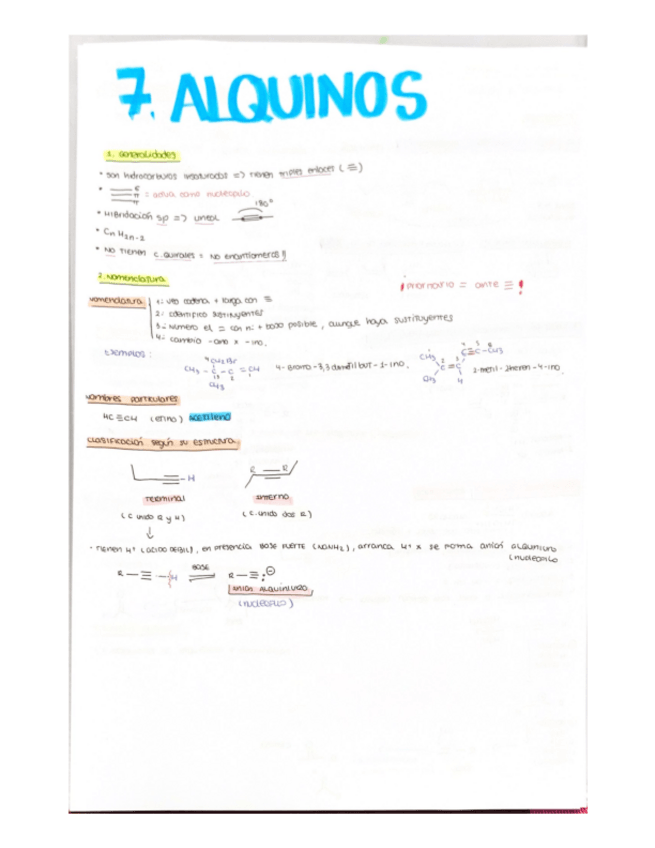 7. ALQUINOS
1. Generalidades
• son hidrocarburos insaturados => tienen triples enlaces (≡)
• = actúa como nucleófilo
180°
• Hibridación sp => lineal
• Cn H2n-2
• NO TIENEN C. quirales = NO enantiómeros!!
2. Nomenclatura
¡prioritario = ante ≡!
Nomenclatura
1: veo cadena + larga con ≡
2: identifico sustituyentes
3: numero el ≡ con n: + bajo posible, aunque haya sustituyentes
4: cambio -ano x -ino.
Ejemplos:
4-Bromo-3,3 dimetil but-1-ino.
2-metil-2hexen-4-ino.
Nombres particulares
HC≡CH (etino) ACETILENO
Clasificación según su estructura
≡-H
R R
TERMINAL
INTERNO
(C unido R y H)
(C. unido dos R)
• TIENEN H+ (ACIDO DEBIL), en presencia BASE FUERTE (NaNH2), arranca H+ x se forma anión alquiniuro
(nucleófilo
R-≡-H BASE R-≡:⊖
ANIÓN ALQUINIURO
(nucleófilo)